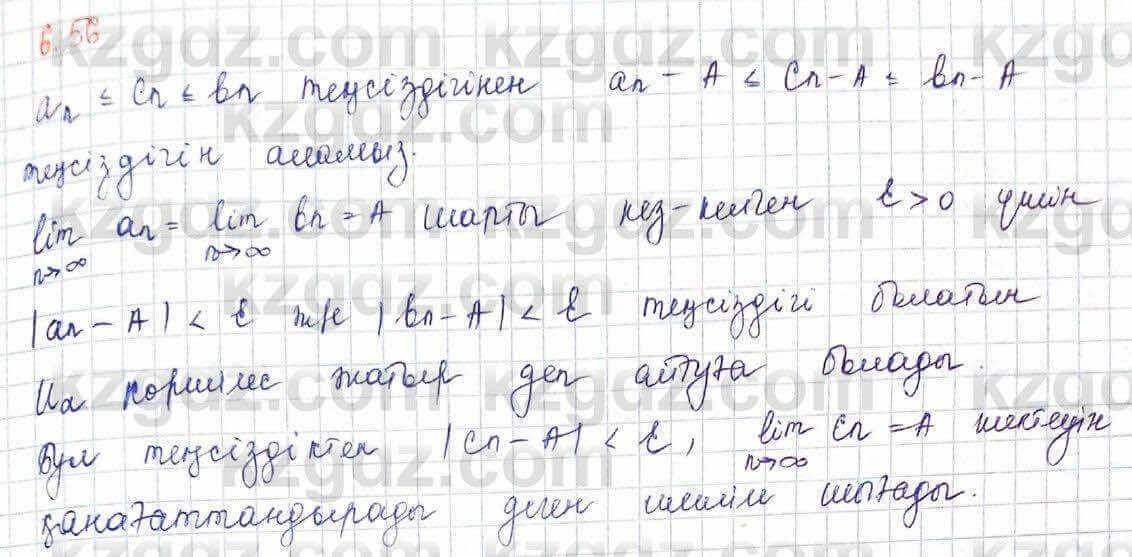 6.56
aₙ ≤ cₙ ≤ bₙ теңсіздігінен aₙ - A ≤ cₙ - A ≤ bₙ - A
теңсіздігін аламыз.
lim n→∞ aₙ = lim n→∞ bₙ = A шарты кез-келген ε > 0 үшін
|aₙ - A| < ε ж/е |bₙ - A| < ε теңсіздігі болатын
көршілес жатыр деп айтуға болады.
Бұл теңсіздіктен |cₙ - A| < ε, lim n→∞ cₙ = A шектеуін
қанағаттандырады деген шешім шығады.
kzgdz.com